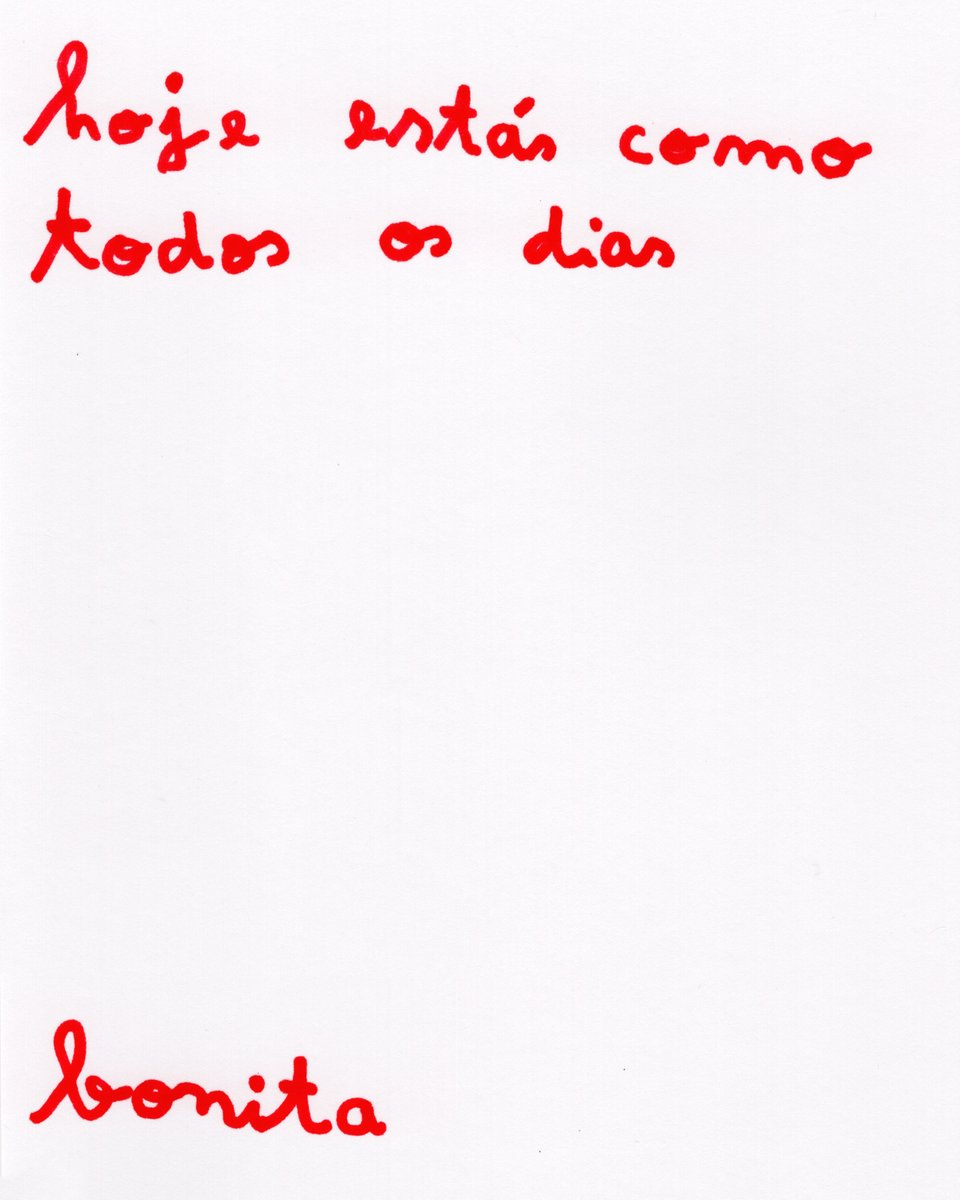 hoje estás como
todos os dias
bonita